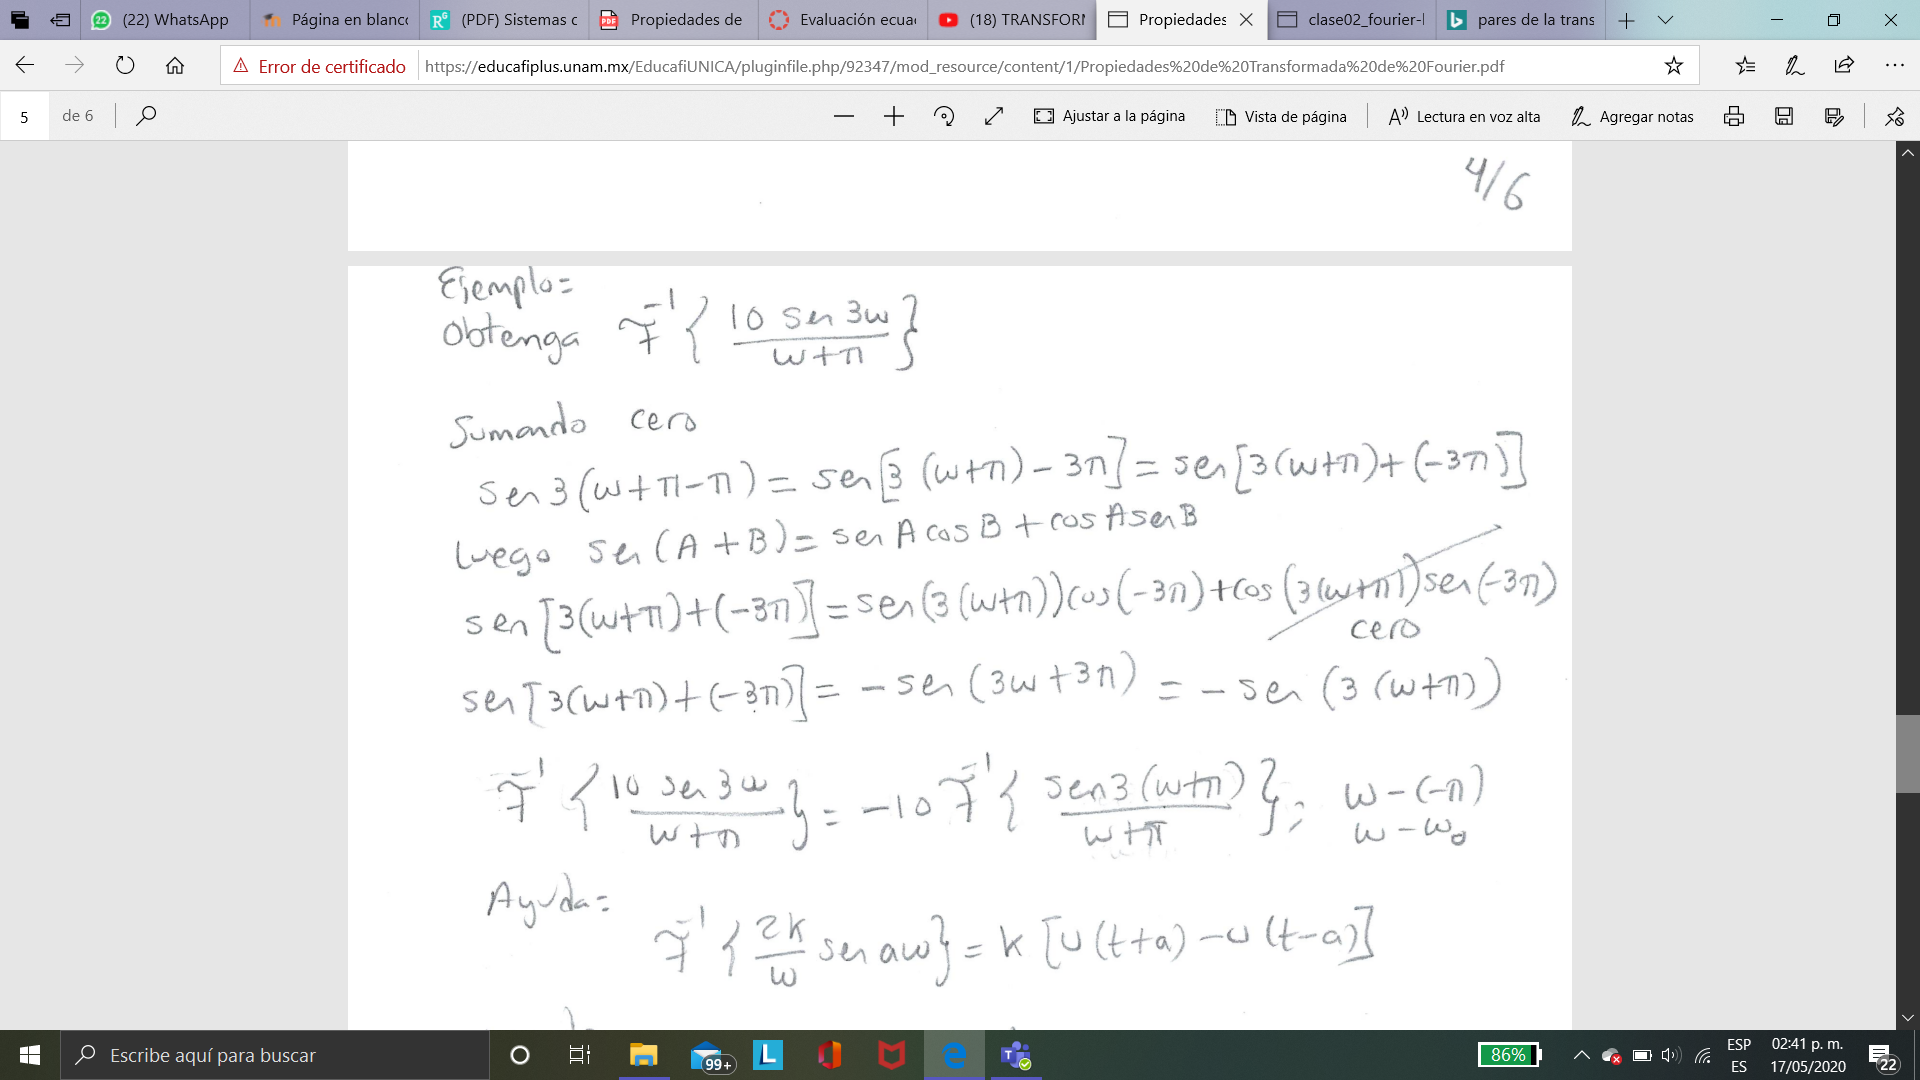 (22) WhatsApp
Página en blanco
(PDF) Sistemas c
Propiedades de
Evaluación ecua
(18) TRANSFORM
Propiedades
clase02_fourier-l
pares de la trans
Error de certificado
https://educafiplus.unam.mx/EducafiUNICA/pluginfile.php/92347/mod_resource/content/1/Propiedades%20de%20Transformada%20de%20Fourier.pdf
5 de 6
Ajustar a la página
Vista de página
Lectura en voz alta
Agregar notas
4/6
Ejemplo=
Obtenga F⁻¹ { 10 sen 3w / w+π }
Sumando cero
sen 3(w+π-π) = sen[3 (w+π) - 3π] = sen[3(w+π)+(-3π)]
luego sen(A+B)= sen A cos B + cos A sen B
sen [3(w+π)+(-3π)] = sen(3(w+π))cos(-3π)+cos(3(w+π))sen(-3π)
cero
sen[3(w+π)+(-3π)] = - sen (3w+3π) = - sen (3 (w+π))
F⁻¹ { 10 sen 3w / w+π } = -10 F⁻¹ { sen 3 (w+π) / w+π } ; w-(-π)
w-w₀
Ayuda=
F⁻¹ { 2k / w sen aw } = k [u(t+a) - u(t-a)]
Escribe aquí para buscar
99+
86%
ESP
ES
02:41 p. m.
17/05/2020
22